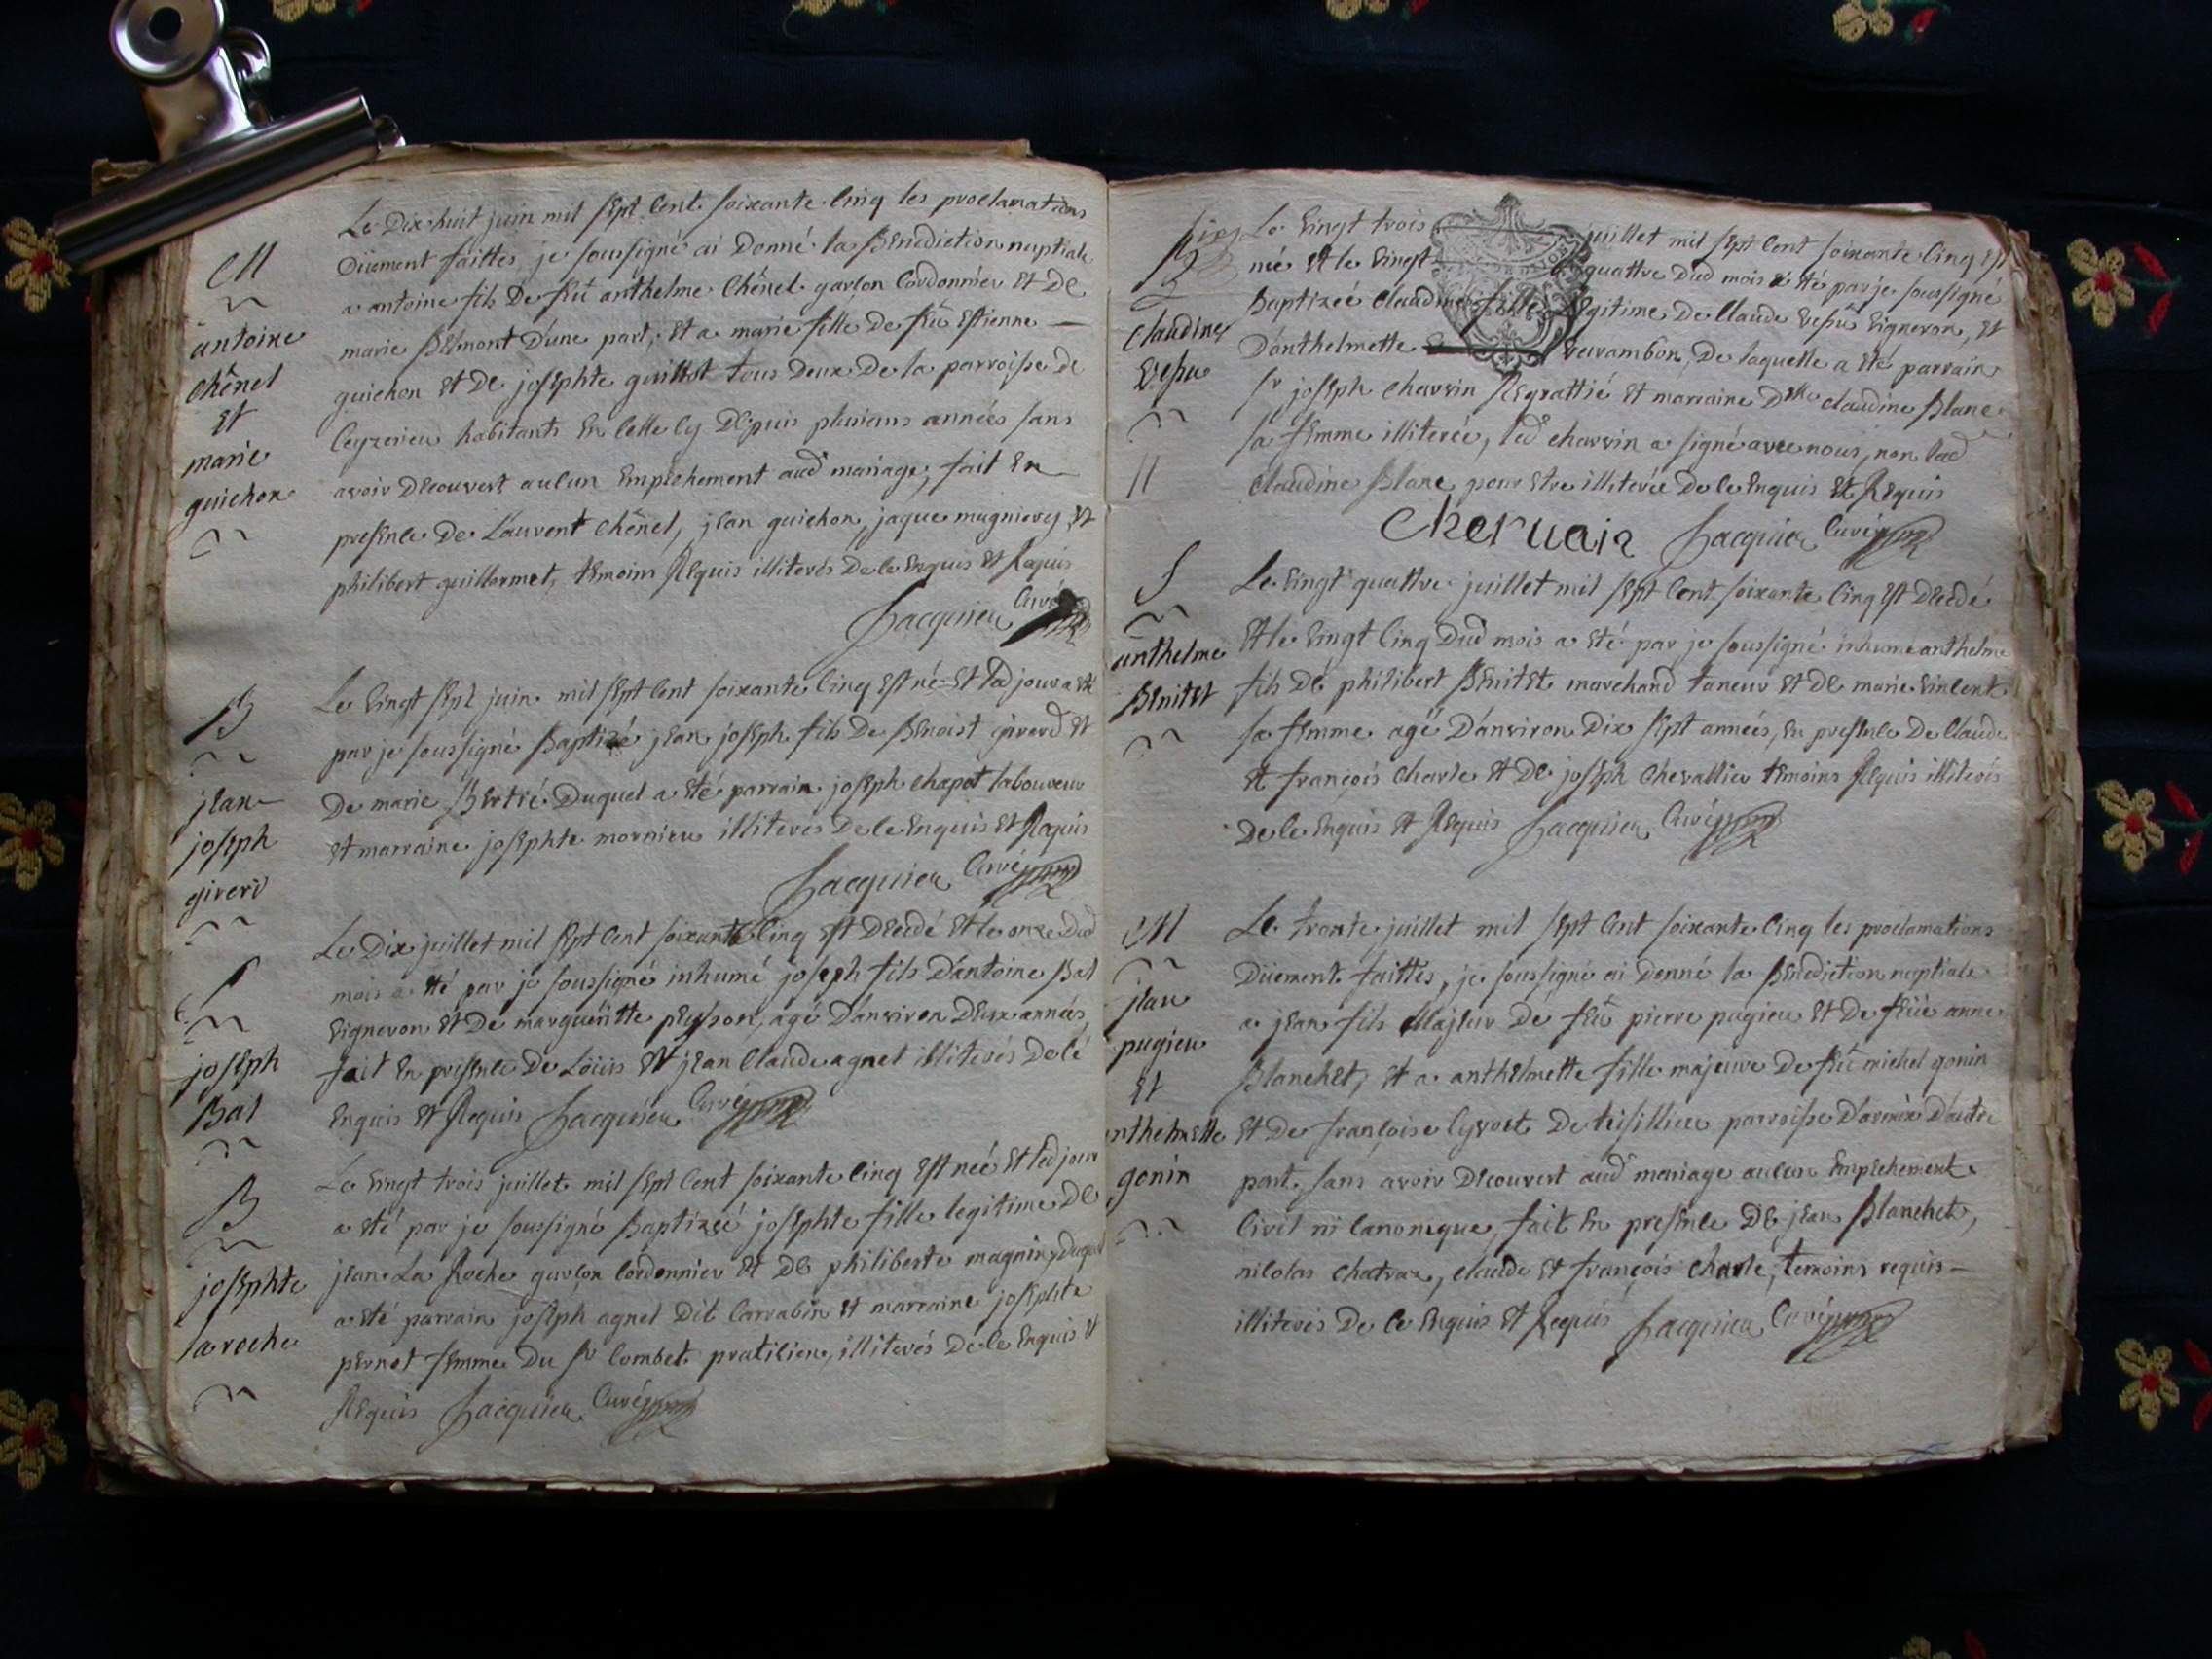 M
antoine
chênel
et
marie
guichon
Le Dix huit juin mil sept cent soixante cinq les proclamations
Düement faittes, je soussigné ai Donné la Benediction nuptiale
a antoine fils De feü anthelme Chênel garçon Cordonnier et De
marie Belmont D'une part, et a marie fille De feü Estienne
guichon et De josephte guillot tous Deux De la parroisse de
Ceyzerieu habitants En celle cy Depuis plusieurs années sans
avoir Découvert aucun Empechement aud mariage, fait En
presence De Laurent Chênel, jean guichon, jaque mugniery et
philibert guillermet, temoins Requis illiterés De ce Enquis et Requis
Jacquieu Curé
B
jean
joseph
giverd
Le vingt sept juin mil sept cent soixante cinq est né et led jour a eté
par je soussigné Baptizé jean joseph fils De Benoist giverd et
De marie Bertié Duquel a eté parrain joseph chapot laboureur
et marraine josephte mornieu illiterés De ce Enquis et Requis
Jacquieu Curé
S
joseph
Bal
Le Dix juillet mil sept cent soixante cinq est Decedé et le onze Dud
mois a eté par je soussigné inhumé joseph fils D'antoine Bal
vigneron et De margueritte peysson, agé D'anviron Deux années
fait En presence De Loüis et jean Claude agnel illiterés De cé
Enquis et Requis Jacquieu Curé
B
josephte
laroche
Le vingt trois juillet mil sept cent soixante cinq est née et led jour
a eté par je soussigné Baptizeé josephte fille legitime De
jean La Roche garçon Cordonnier et De philiberte magnin, Duquel
a eté parrain joseph agnel Dit Carrabin et marraine josephte
pernot femme Du Sr Combet praticien, illiterés De ce Enquis et
Requis Jacquieu Curé
B
Claudine
vepu
Le vingt trois juillet mil sept cent soixante cinq est
né et le vingt quattre Dud mois a eté par je soussigné
Baptizeé Claudine fille legitime De Claude vepu vigneron, et
D'anthelmette verrambon, De laquelle a eté parrain
Sr joseph charvin Regrattié et marraine Dlle claudine Blanc
sa femme illitereé, led charvin a signé avec nous, non lad
claudine Blanc pour etre illitereé De ce Enquis et Requis
Cheruain Jacquieu Curé
S
anthelme
Benitet
Le vingt quattre juillet mil sept cent soixante cinq est Decedé
et le vingt cinq Dud mois a eté par je soussigné inhumé anthelme
fils De philibert Benitet marchand taneur et De marie vincent
sa femme agé D'anviron Dix sept années, En presence De Claude
et françois charle et De joseph Chevallier temoins Requis illiterés
De ce Enquis et Requis Jacquieu Curé
M
jean
pugieu
et
nthelmette
gonin
Le trente juillet mil sept cent soixante cinq les proclamations
Düement faittes, je soussigné ai donné la Benediction nuptiale
a jean fils Majeur De feü pierre pugieu et De feüe anne
Blanchet, et a anthelmette fille majeure De feü michel gonin
et De françoise Cyvoct De parroisse D'autre
part, sans avoir Decouvert aud mariage aucun Empechement
Civil ni Canonique, fait En presence De jean Blanchet,
nicolas Chatraz, claude et françois charle, temoins requis
illiterés De ce Enquis et Requis Jacquieu Curé